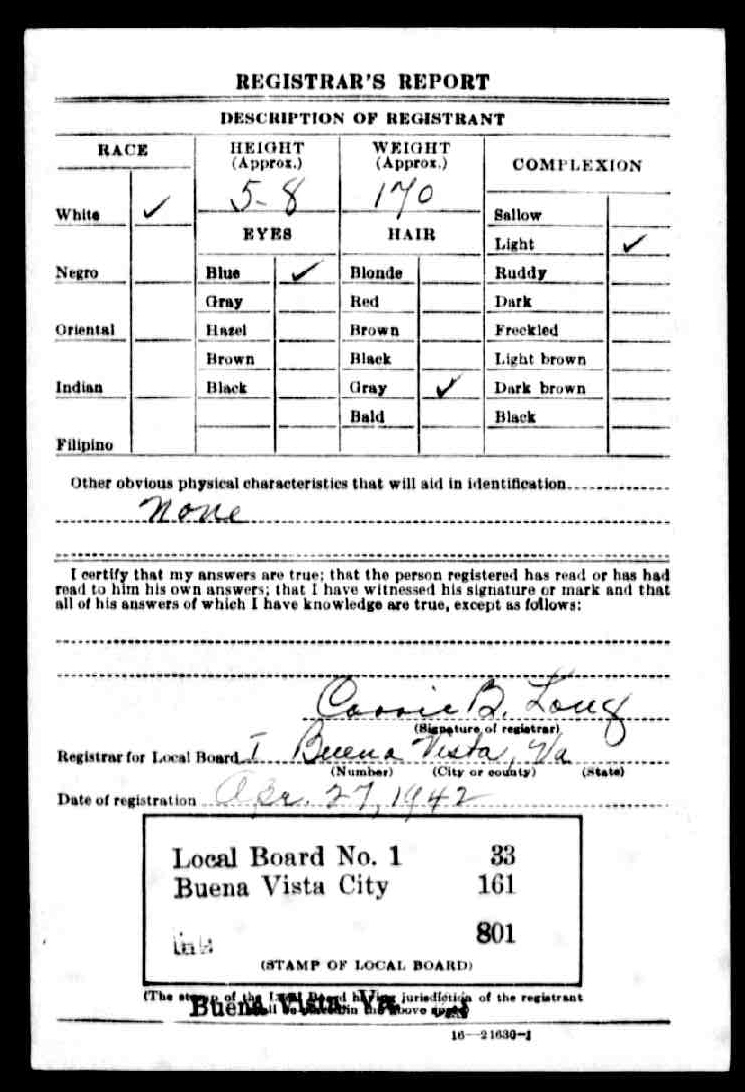 REGISTRAR'S REPORT
DESCRIPTION OF REGISTRANT
RACE
HEIGHT
(Approx.)
WEIGHT
(Approx.)
COMPLEXION
5-8
170
White ✓
Sallow
EYES
HAIR
Light ✓
Negro
Blue ✓
Blonde
Ruddy
Gray
Red
Dark
Oriental
Hazel
Brown
Freckled
Brown
Black
Light brown
Indian
Black
Gray ✓
Dark brown
Bald
Black
Filipino
Other obvious physical characteristics that will aid in identification
None
I certify that my answers are true; that the person registered has read or has had
read to him his own answers; that I have witnessed his signature or mark and that
all of his answers of which I have knowledge are true, except as follows:
Carrie B. Long
(Signature of registrar)
Registrar for Local Board I Buena Vista, Va
(Number) (City or county) (State)
Date of registration Apr. 27, 1942
Local Board No. 1 33
Buena Vista City 161
801
(STAMP OF LOCAL BOARD)
(The stamp of the Local Board having jurisdiction of the registrant
shall be placed in the above space)
Buena Vista, Va
16—21630-1